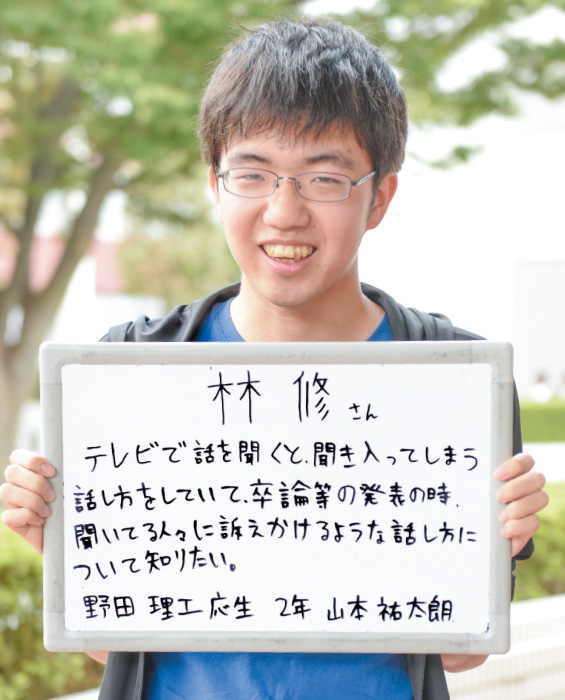 林 修 さん
テレビで話を聞くと、聞き入ってしまう
話し方をしていて、卒論等の発表の時、
聞いてる人々に訴えかけるような話し方に
ついて知りたい。
野田 理工 応生 2年 山本 祐太朗